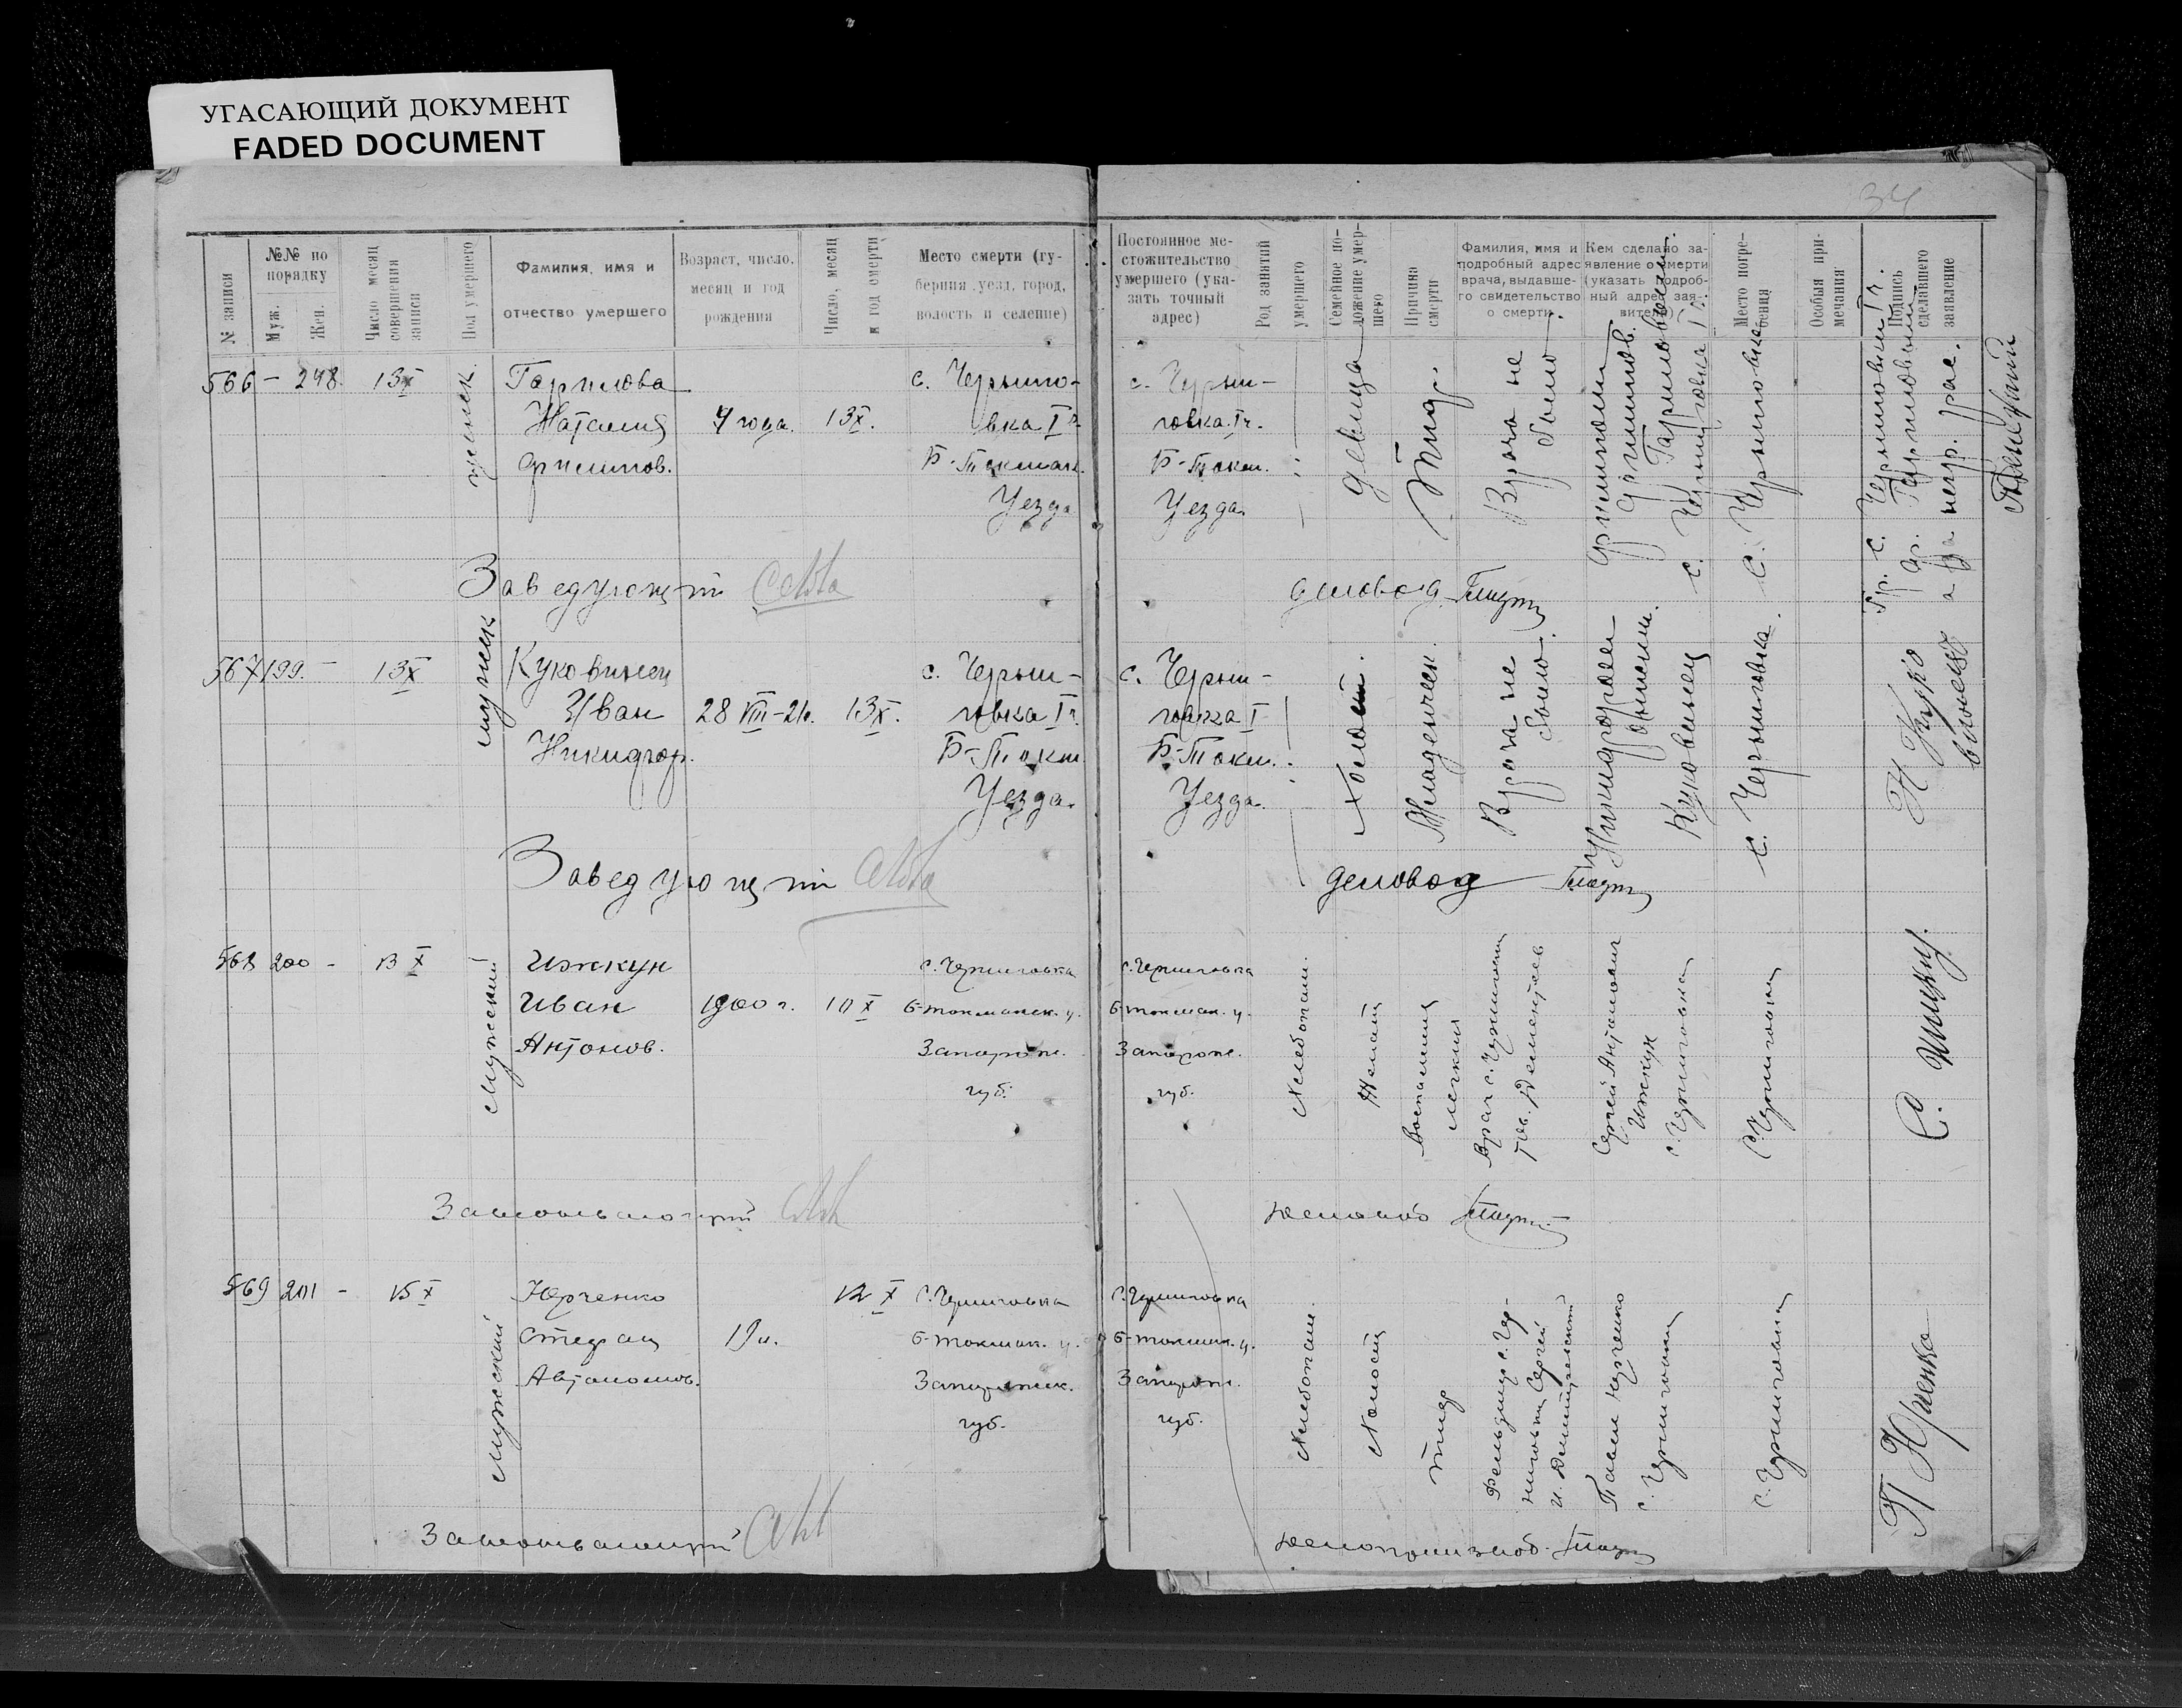 УГАСАЮЩИЙ ДОКУМЕНТ
FADED DOCUMENT
34
№ записи
№№ по порядку
Муж.
Жен.
Число месяц совершения записи
Пол умершего
Фамилия, имя и отчество умершего
Возраст, число, месяц и год рождения
Число, месяц и год смерти
Место смерти (губерния, уезд, город, волость и селение)
Постоянное местожительство умершего (указать точный адрес)
Род занятий умершего
Семейное положение умершего
Причина смерти
Фамилия, имя и подробный адрес врача, выдавшего свидетельство о смерти
Кем сделано заявление о смерти (указать подробный адрес заявителя)
Место погребения
Особыя примечания
Подпись сделавшего заявление
566 — 248. 13 X
женск.
Гармлова
Наталия
4 года. 13 X.
с. Черниго-
вка I г.
Б-Токмак.
Уезда
с. Черни-
говка I г.
Б-Токм.
Уезда
девица
Тиф.
Врача не
было.
с. Черниговка I г.
с. Черниговка
Заведующий
деловод
567 199. — 13 X
мужск
Куковинец
Иван
Никифор.
28 VIII-21г. 13 X.
с. Черни-
говка I г.
Б-Токм
Уезда.
с. Черни-
говка I
Б-Токм.
Уезда.
Холост.
Младенческ.
Врача не
было.
Никифором
Куковинец
с. Черниговка.
Н Куковинец
Заведующий
деловод
568 200 - 13 X
мужеский
Ижкун
Иван
Антонов.
1900 г. 10 X
с. Черниговка
Б-токманск. у.
Запорож.
губ.
с. Черниговка
Б-токмак. у.
Запорож.
губ.
Хлебопаш.
Женат
Воспаления
легких
Врач с. Черниговки
Дементьев
Сергей Антонович
Ижкун
с. Черниговка
с. Черниговка
С. Ижкун.
569 201 - 15 X
мужеский
Юрченко
Стефан
Автономов.
19 л.
12 X
с. Черниговка
Б-токмак. у.
Запорожск.
губ.
с. Черниговка
Б-токмак. у.
Запорож.
губ.
Хлебопаш.
Холост
тиф
Фельдшер с. Чер-
ниговки Сергей
Павел Юрченко
с. Черниговка
с. Черниговка
П Юрченко
делопроизвод.